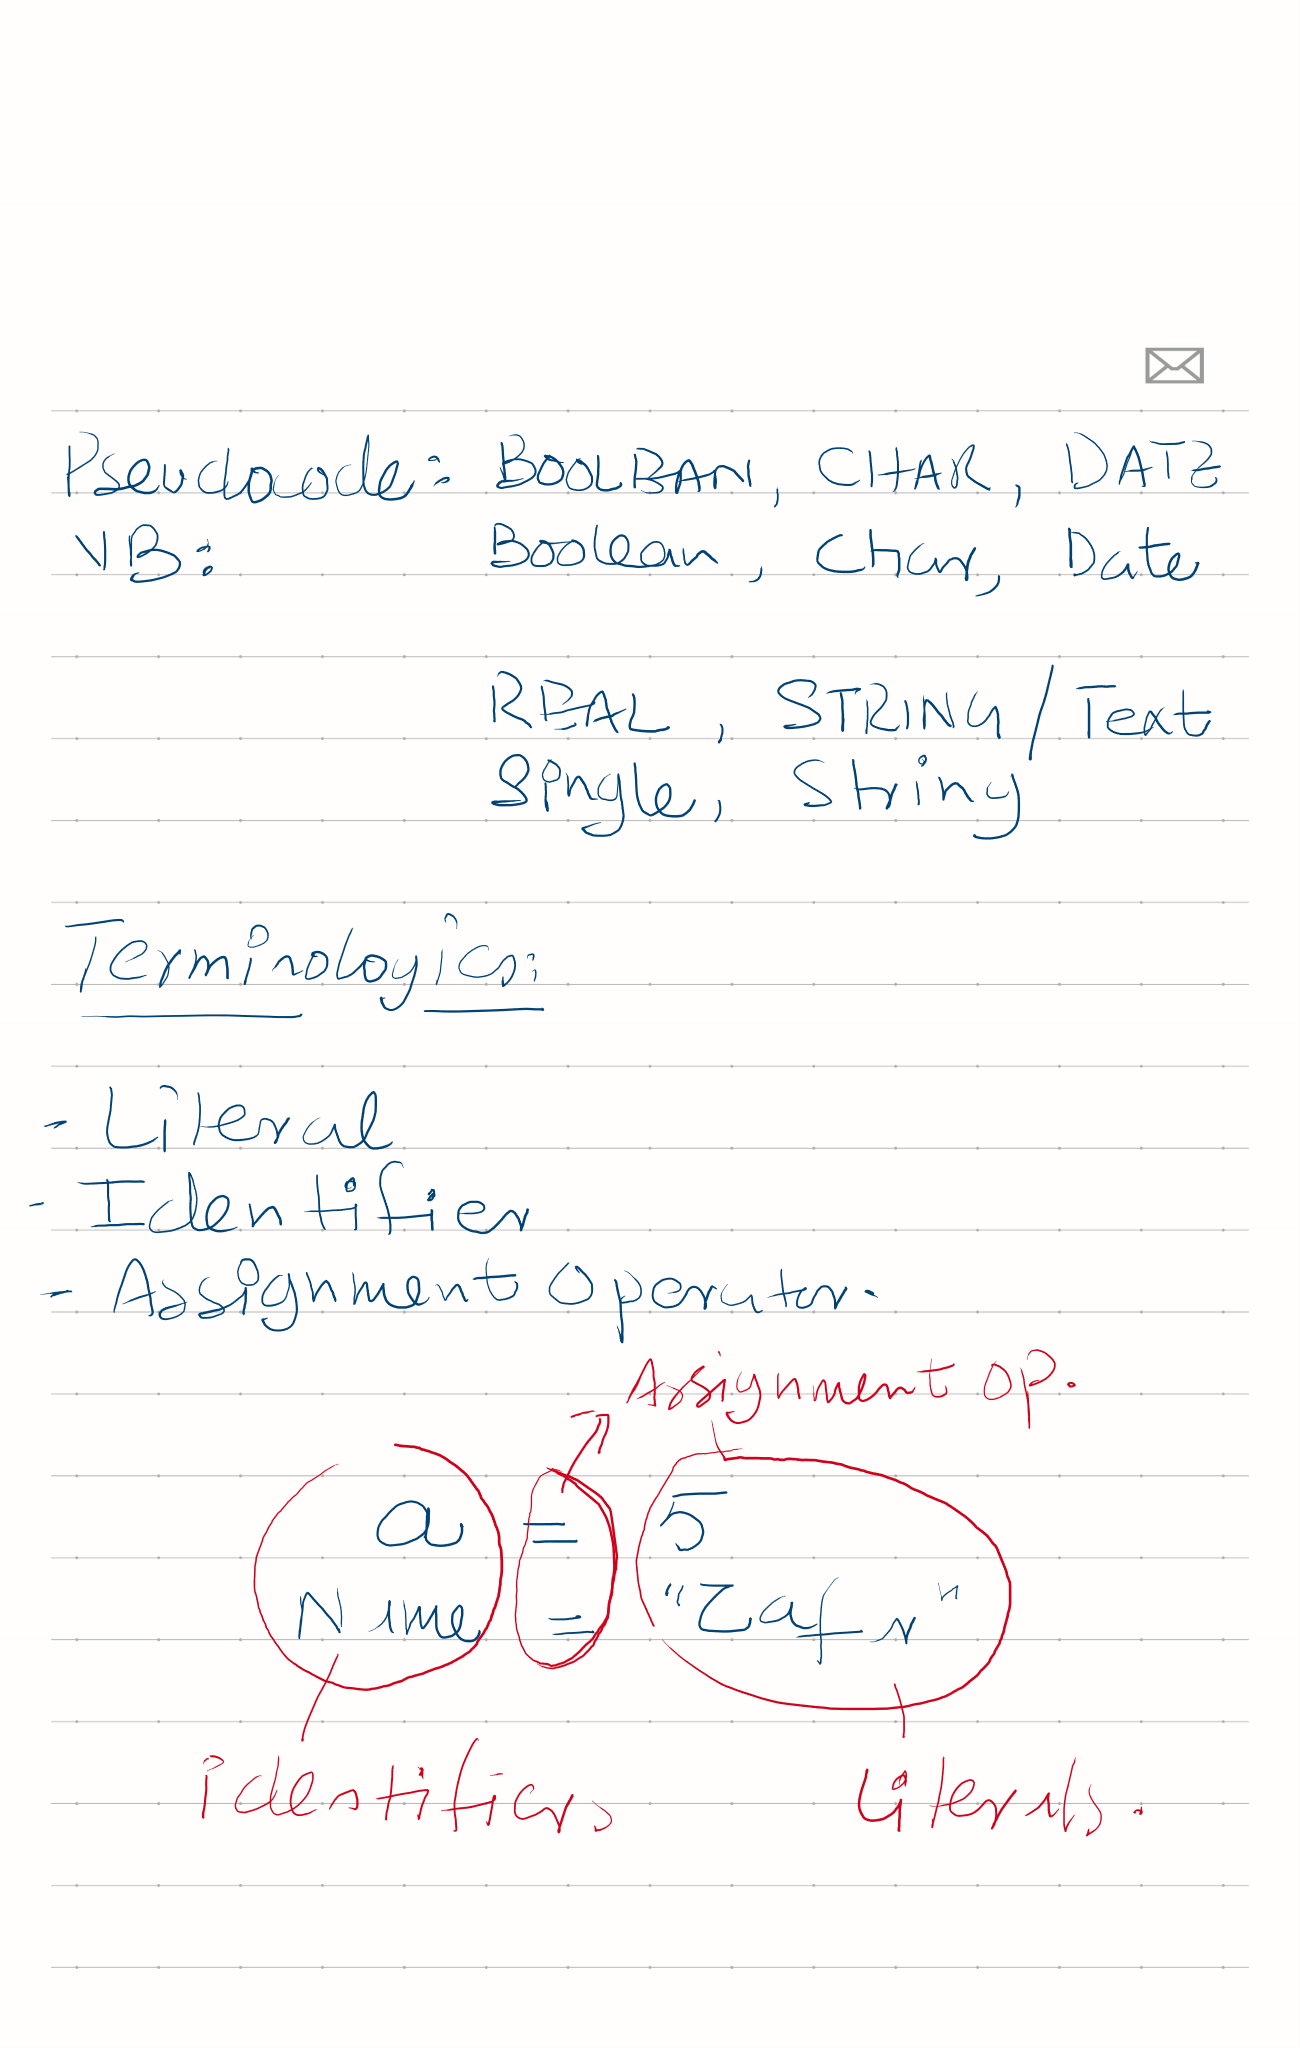 Pseudocode: BOOLEAN, CHAR, DATE
VB: Boolean, Char, Date
REAL, STRING / Text
Single, String
Terminologies:
- Literal
- Identifier
- Assignment Operator.
Assignment OP.
a = 5
Name = "Zafr"
identifiers
Literals.